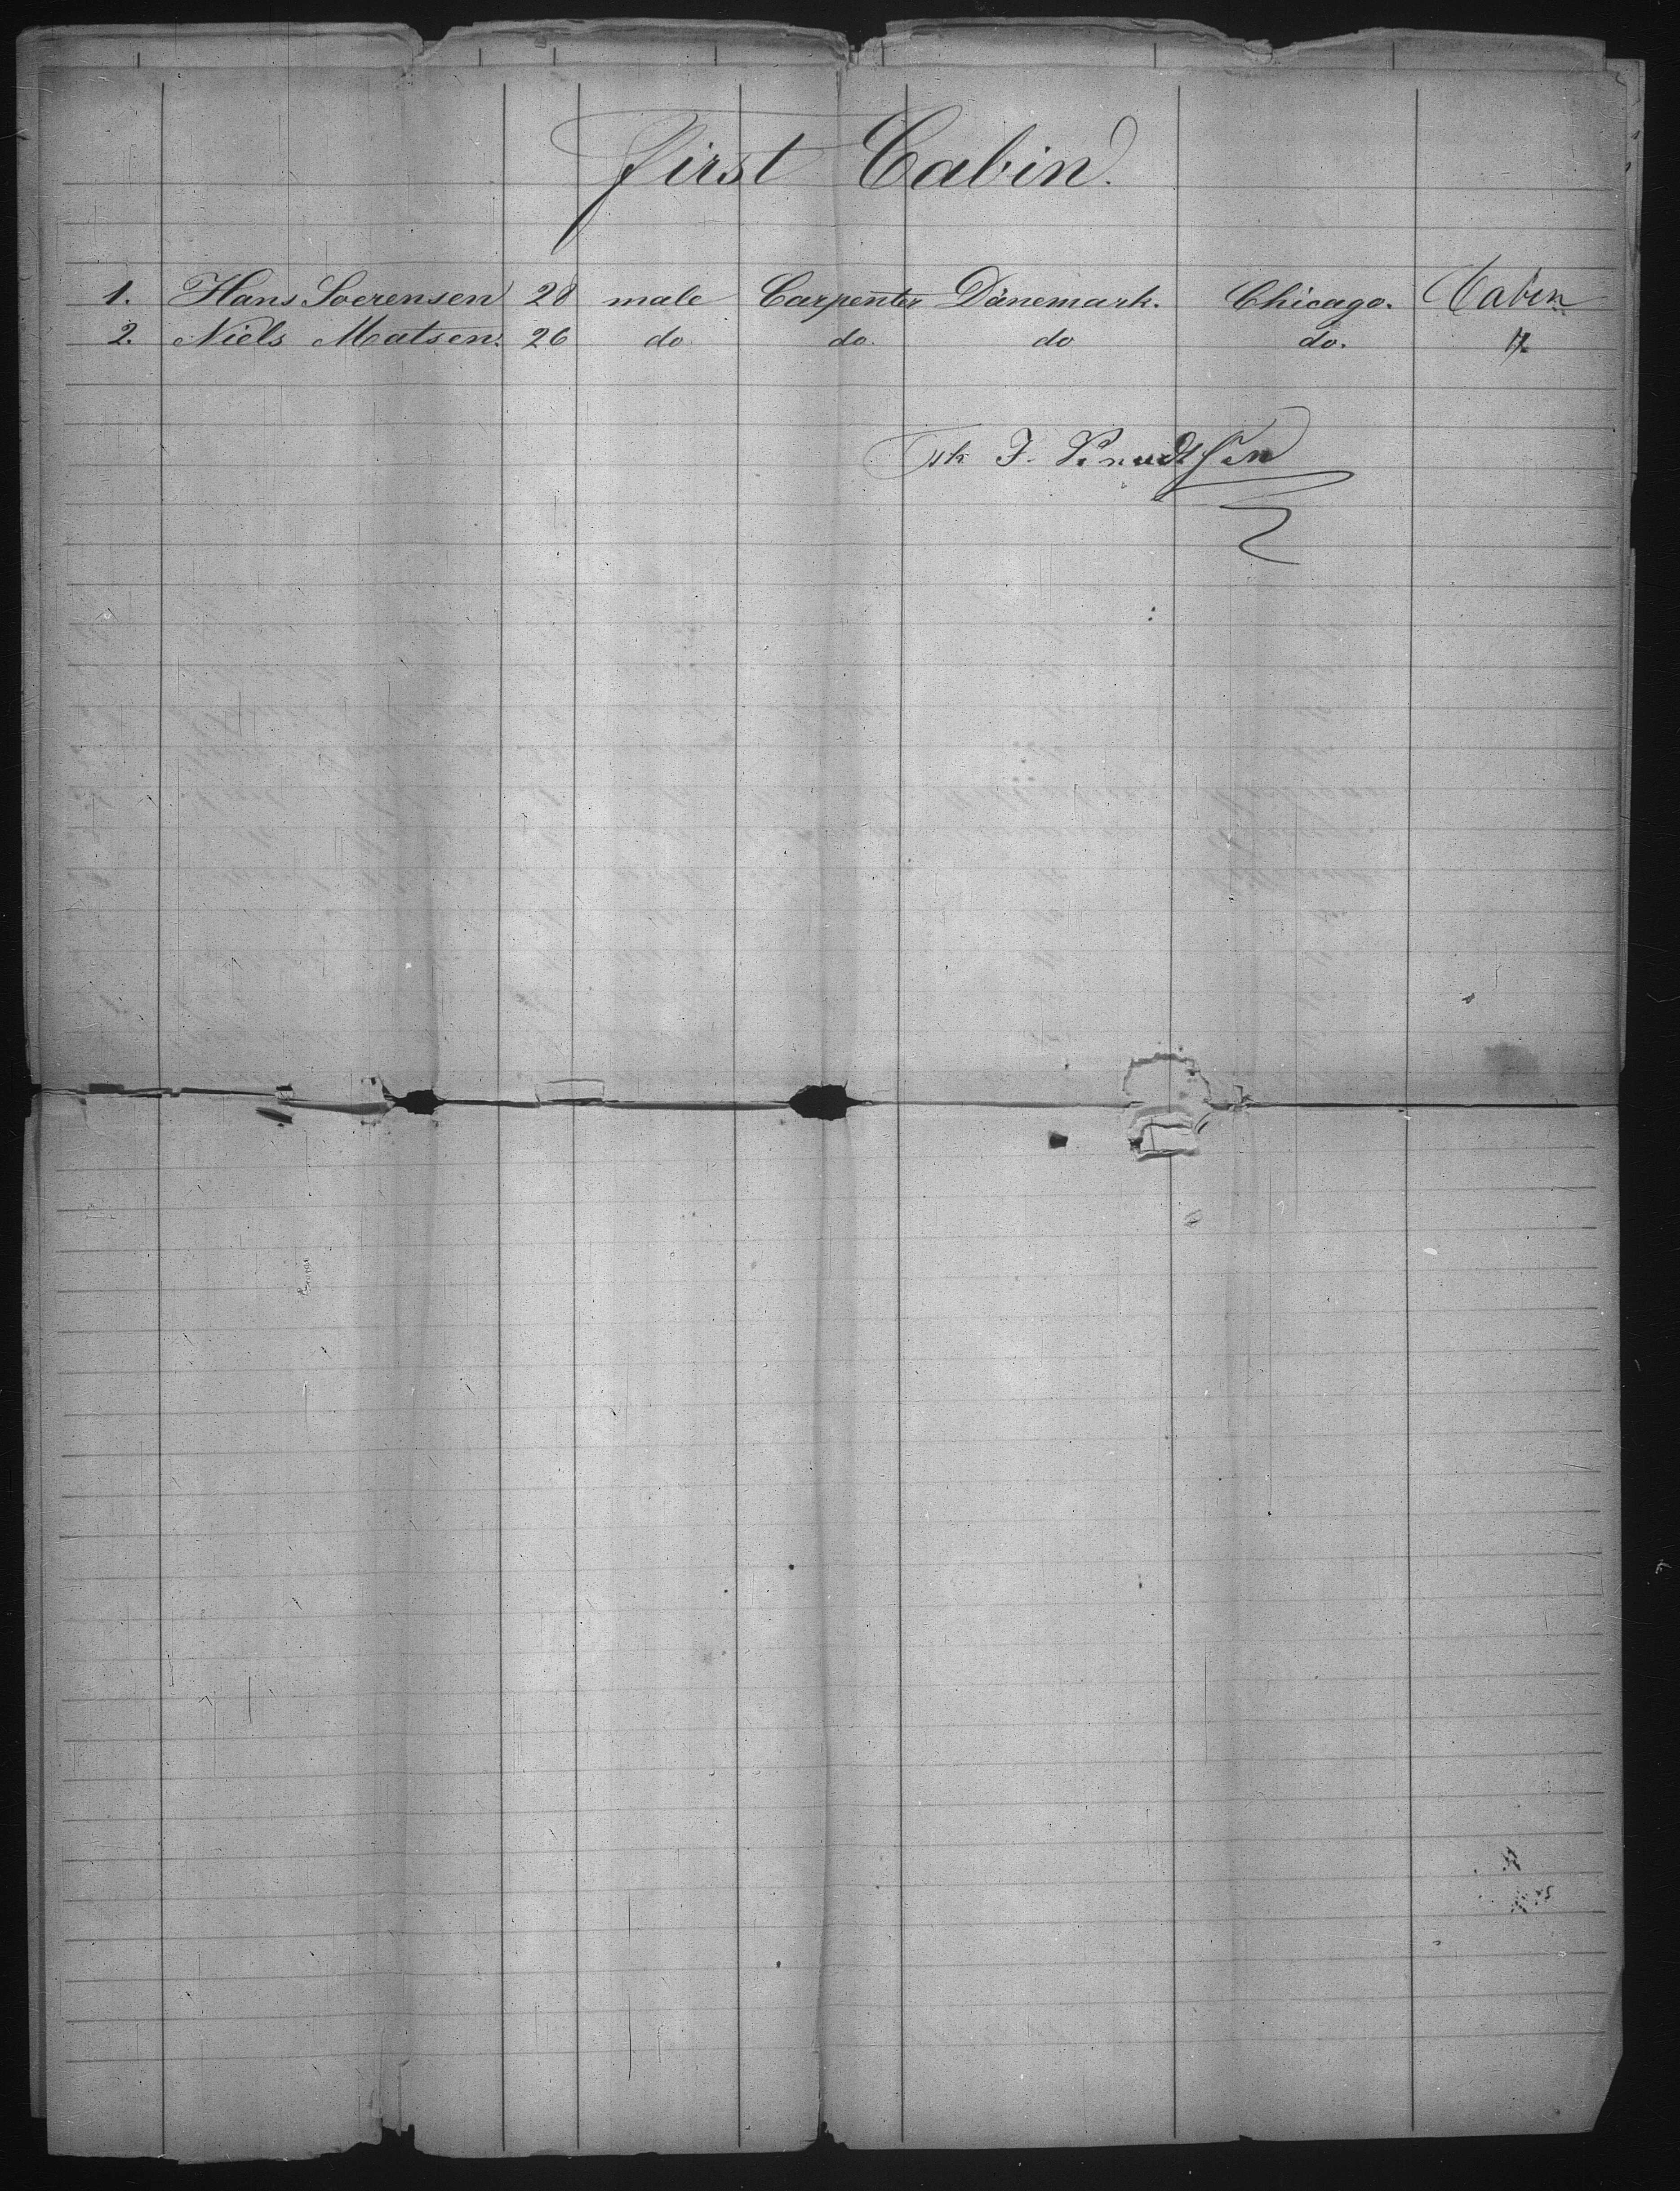 First Cabin.
1. Hans Soerensen 28 male Carpenter Dänemark. Chicago. Cabin
2. Niels Matsen. 26 do do. do do. "
J.